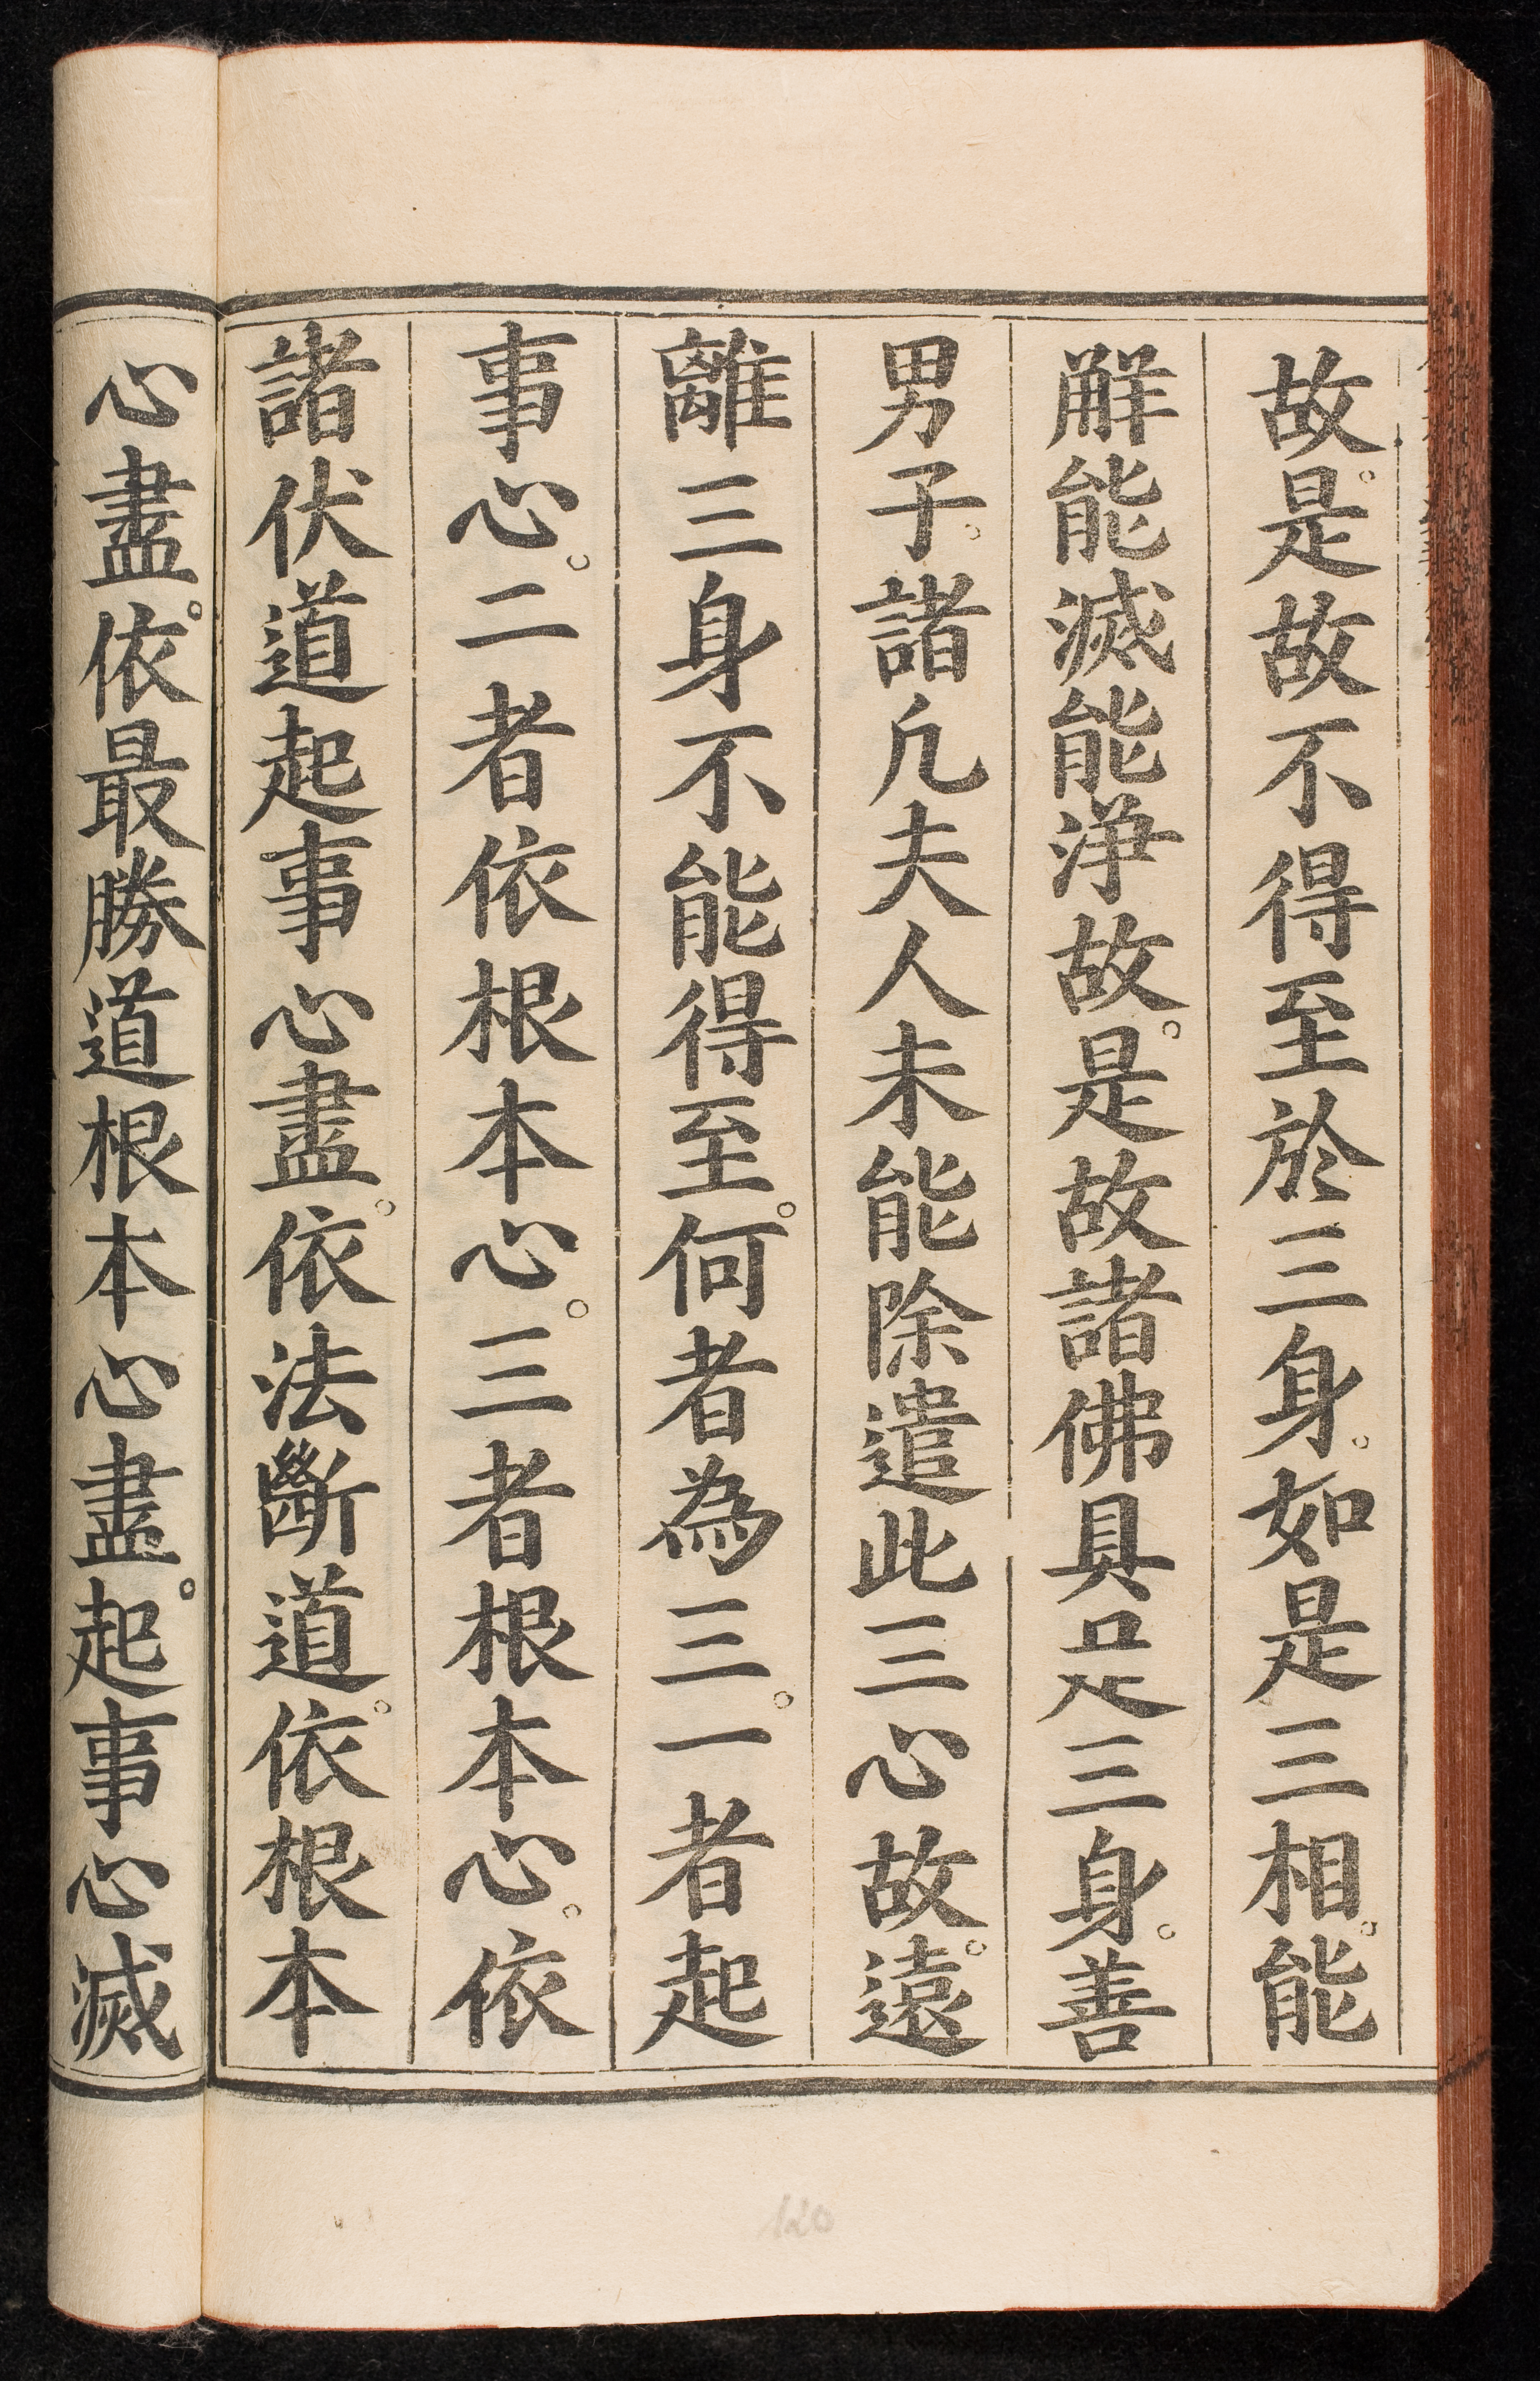 故。是故不得至於三身。如是三相。能
解能滅能淨故。是故諸佛具足三身。善
男子。諸凢夫人未能除遣此三心故。遠
離三身不能得至。何者為三。一者起
事心。二者依根本心。三者根本心。依
諸伏道起事心盡。依法斷道。依根本
心盡。依最勝道根本心盡。起事心滅
120